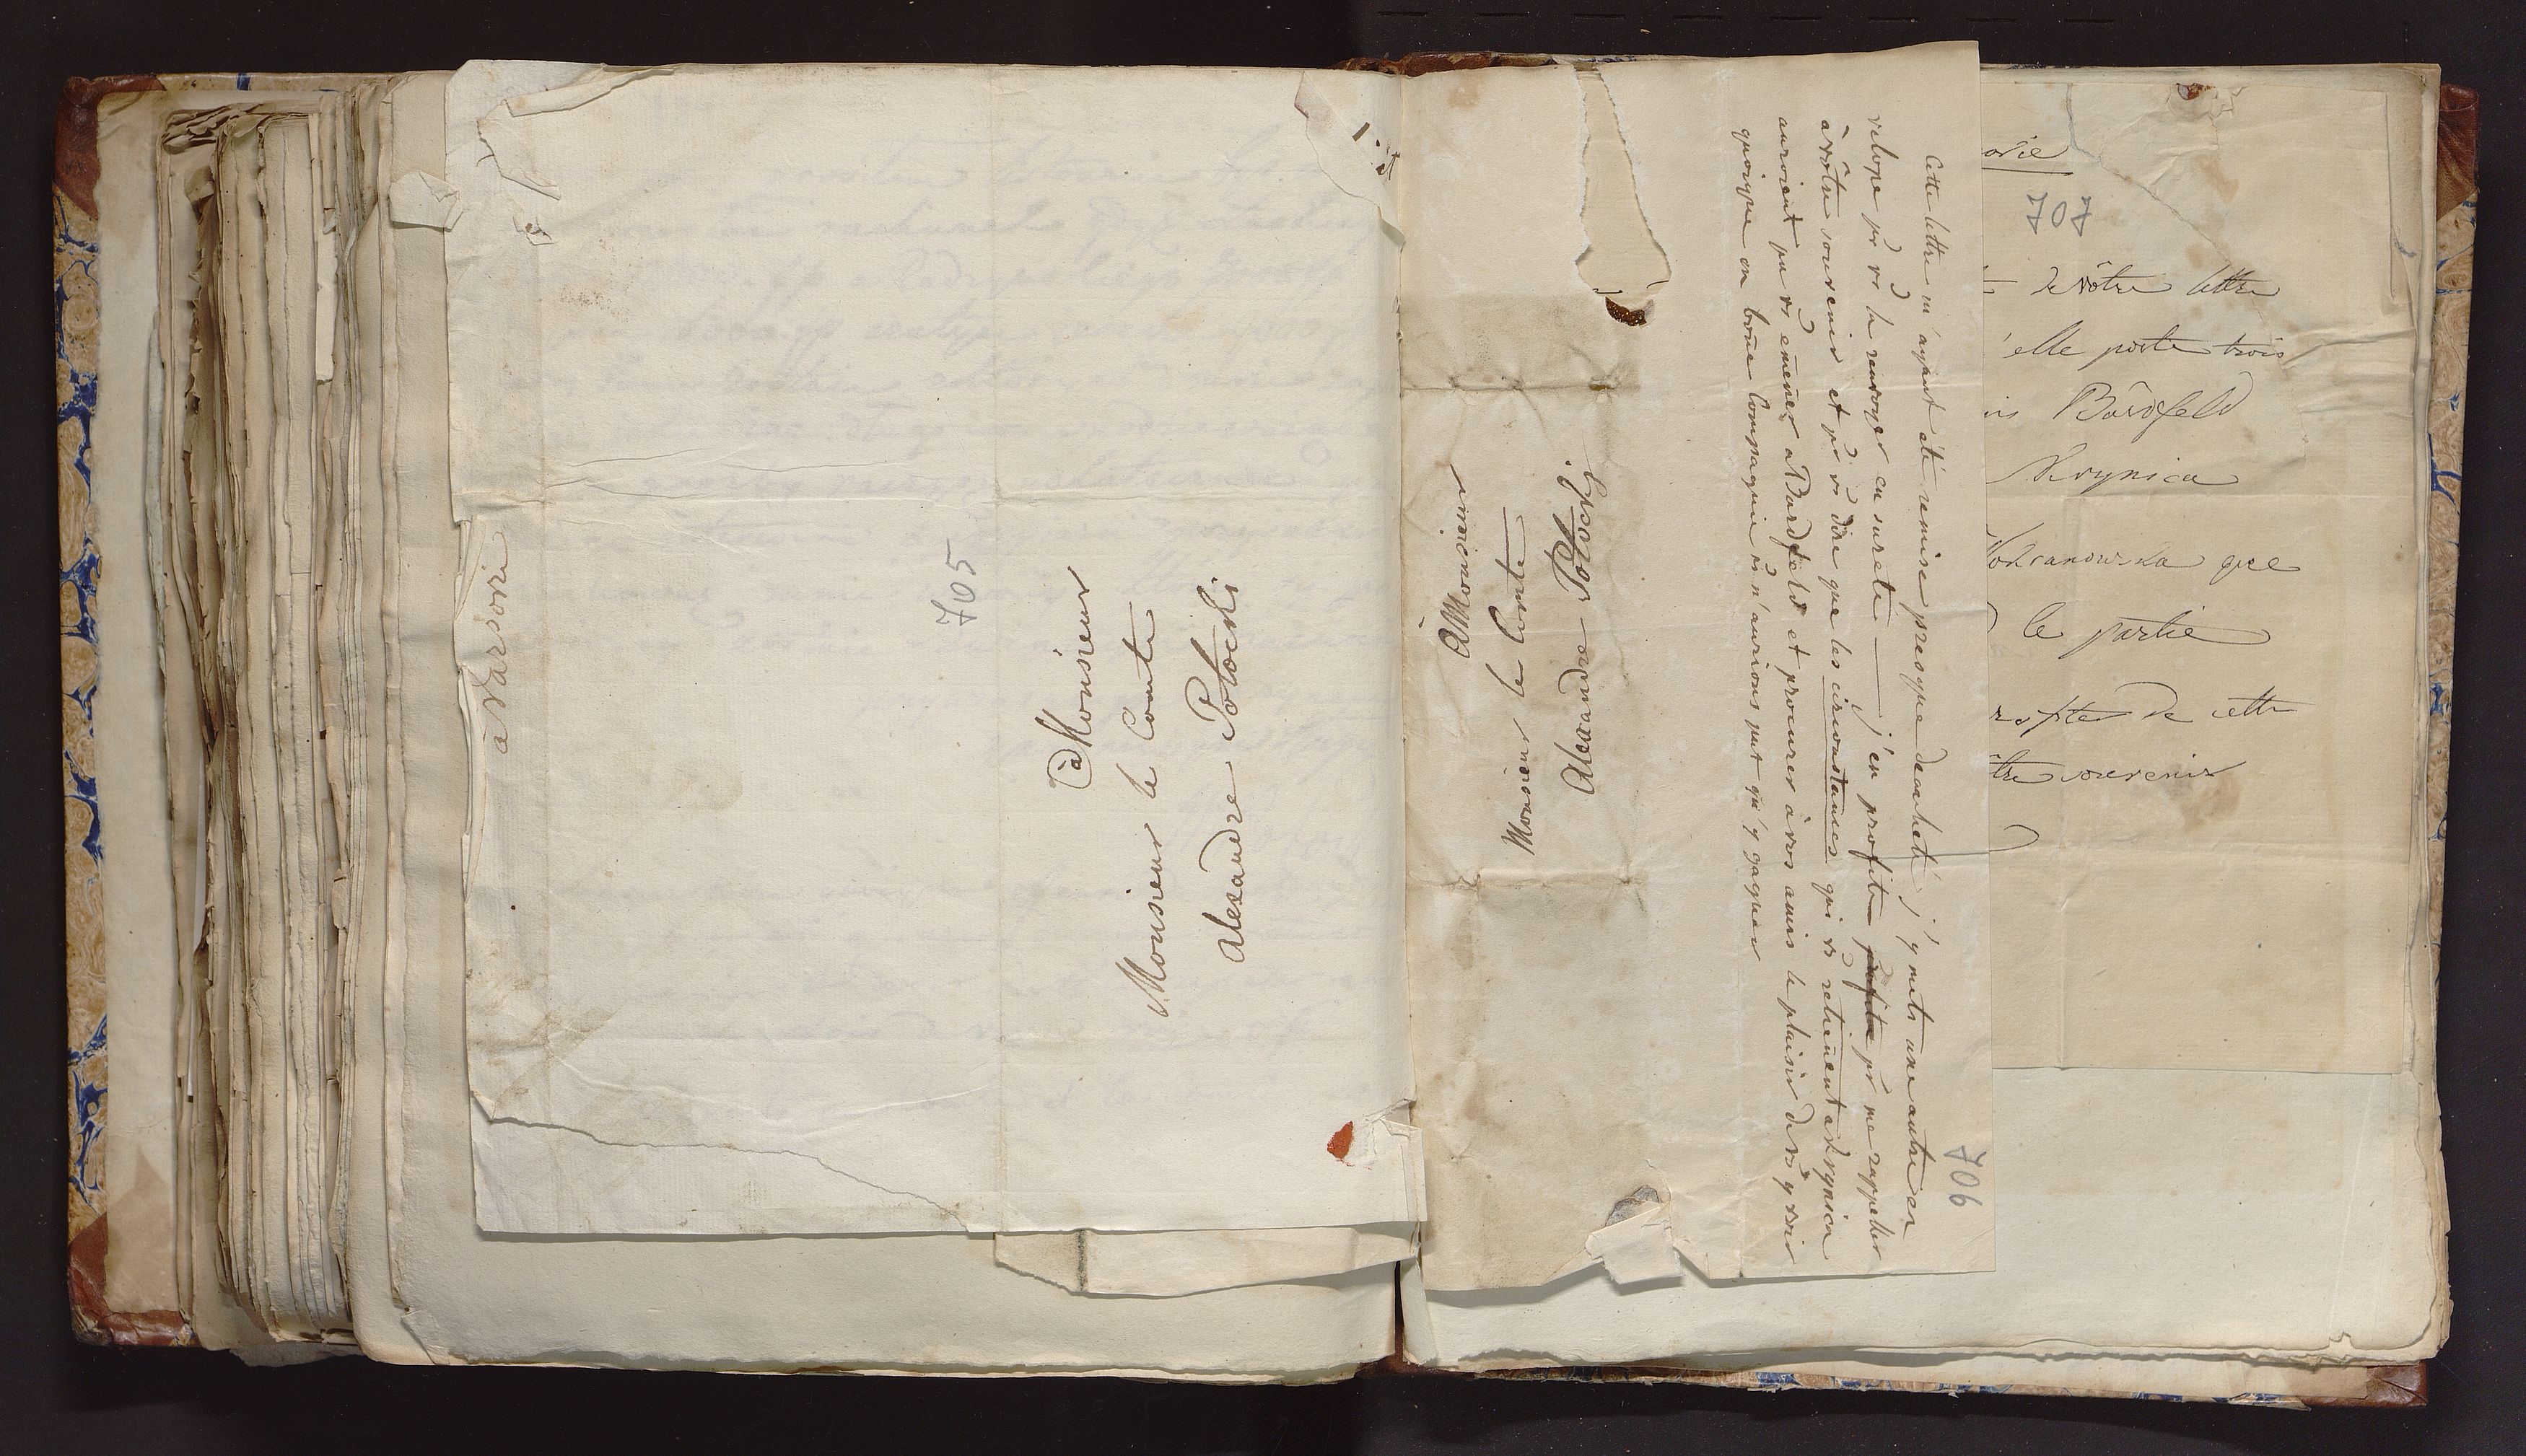 705
à Monsieur
Monsieur le Comte
Alexandre Potocki
à Varsovie
à Monsieur
Monsieur le Comte
Alexandre Potocki
706
Cette lettre m'ayant été remise presque decacheté, j'y mets une autre en
velope pr vs la renvoyer en sureté — j'en profite profite pr me rappeller
à vôtre souvenir et pr vs dire que les circonstances qui vs retieñent a Krynica
auroient pu vs eñener a Bardfeld et procurer à vos amis le plaisir de vs y voir
quoique en boñe compagnie vs n'aurions put qu'y gagner
ovie
707
de vôtre lettre
'elle porte trois
Bardfeld
Krynica
que
le partie
de cette
tre souvenir